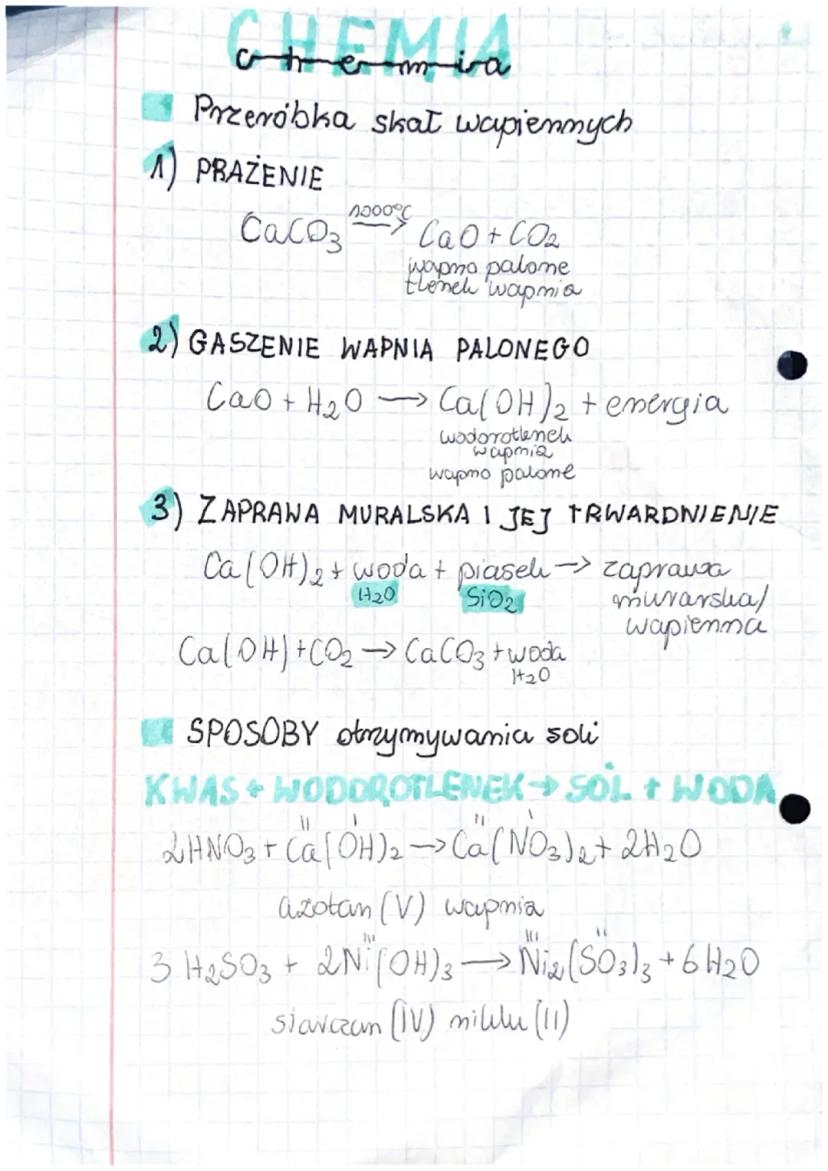 CHEMIA
chemia
Przeróbka skał wapiennych
1) PRAŻENIE
CaCO₃ 1000°C → CaO + CO₂
wapno palone
tlenek wapnia
2) GASZENIE WAPNIA PALONEGO
CaO + H₂O → Ca(OH)₂ + energia
wodorotlenek
wapnia
wapno palone
3) ZAPRAWA MURALSKA I JEJ TRWARDNIENIE
Ca(OH)₂ + woda + piasek → zaprawa
H₂O SiO₂ murarska/
wapienna
Ca(OH) + CO₂ → CaCO₃ + woda
H₂O
SPOSOBY otrzymywania soli
KWAS + WODOROTLENEK → SÓL + WODA
II I II I
2HNO₃ + Ca(OH)₂ → Ca(NO₃)₂ + 2H₂O
azotan (V) wapnia
III III II
3 H₂SO₃ + 2Ni(OH)₃ → Ni₂(SO₃)₃ + 6H₂O
siarczan (IV) niklu (II)